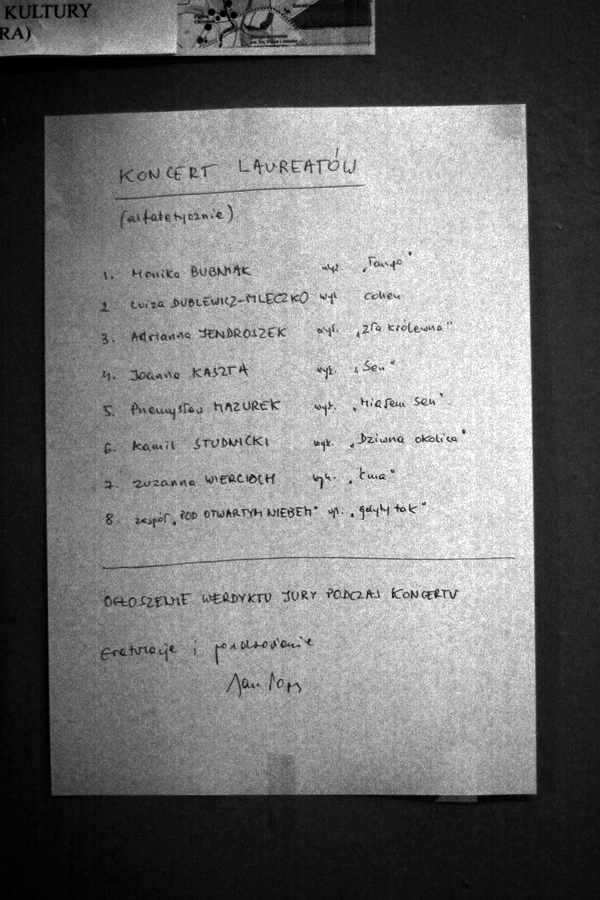 KULTURY
RA)
KONCERT LAUREATÓW
(alfabetycznie)
1. Monika BUBNIAK wyk. „Tango"
2. Luiza DUBLEWICZ-MLECZKO wyk. cohen
3. Adrianna JENDROSZEK wyk. „Zła królewna"
4. Joanna KASZTA wyk. „Sen"
5. Przemysław MAZUREK wyk. „Miałem sen"
6. Kamil STUDNICKI wyk. „Dziwna okolica"
7. Zuzanna WIERCIOCH wyk. „Ćma"
8 zespół „POD OTWARTYM NIEBEM" wyk. „gdyby tak"
OGŁOSZENIE WERDYKTU JURY PODCZAS KONCERTU
Gratulacje i pozdrowienia
Jan